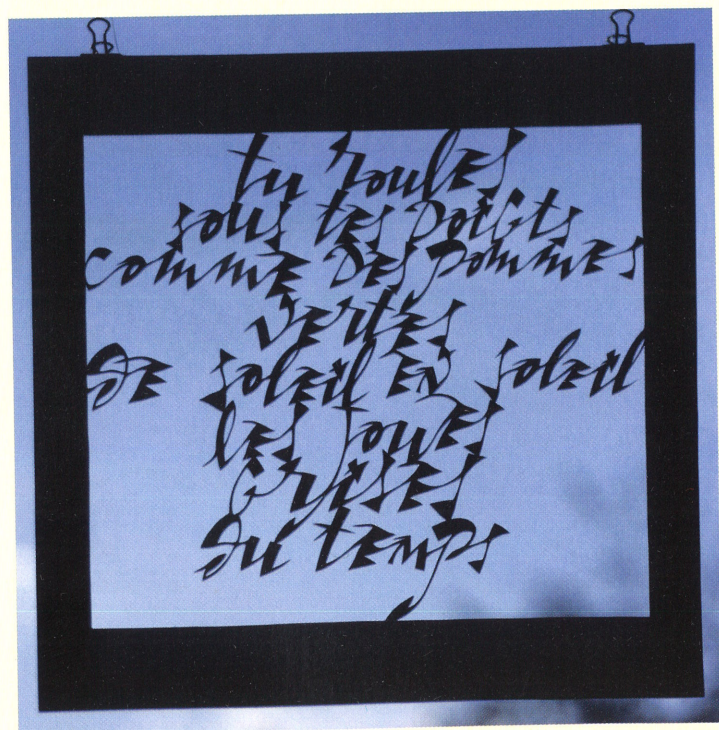 tu roules
sous tes doigts
comme des pommes
vertes
de soleil en soleil
les joues
grises
du temps